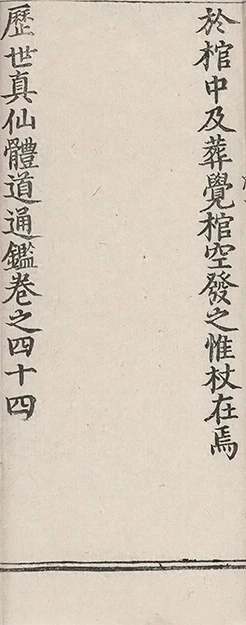 於棺中及葬覺棺空發之惟杖在焉
歷世真仙體道通鑑卷之四十四